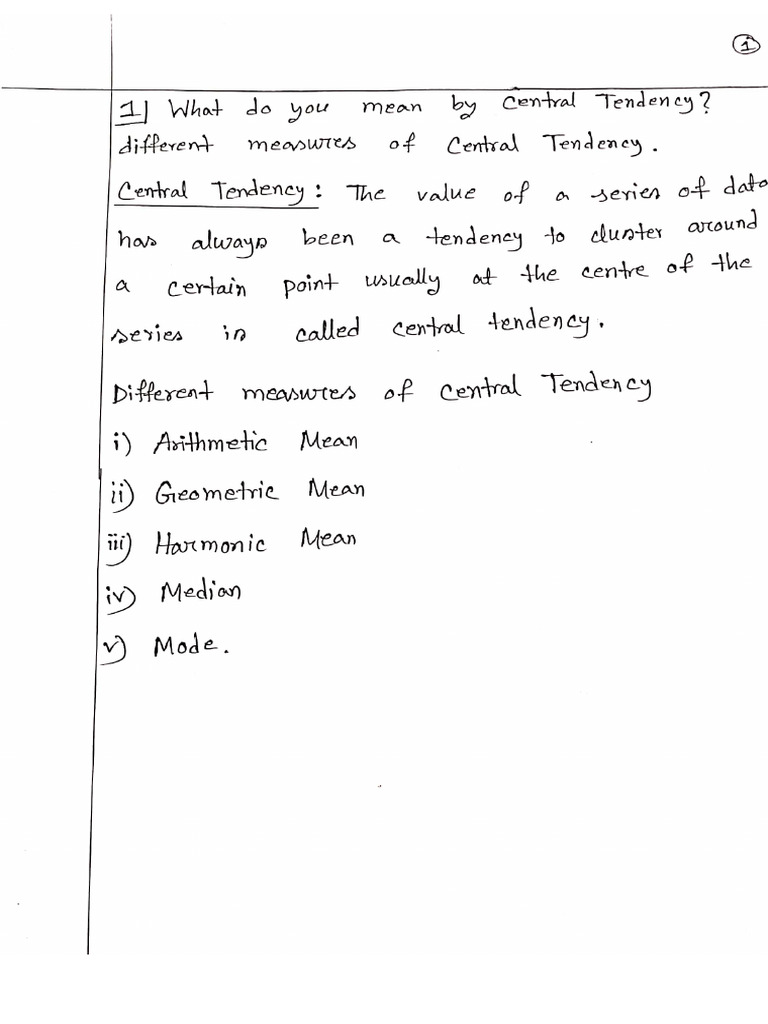 1
1) What do you mean by Central Tendency?
different measures of Central Tendency.
Central Tendency: The value of a series of data
has always been a tendency to cluster around
a certain point usually at the centre of the
series is called central tendency.
Different measures of Central Tendency
i) Arithmetic Mean
ii) Geometric Mean
iii) Harmonic Mean
iv) Median
v) Mode.